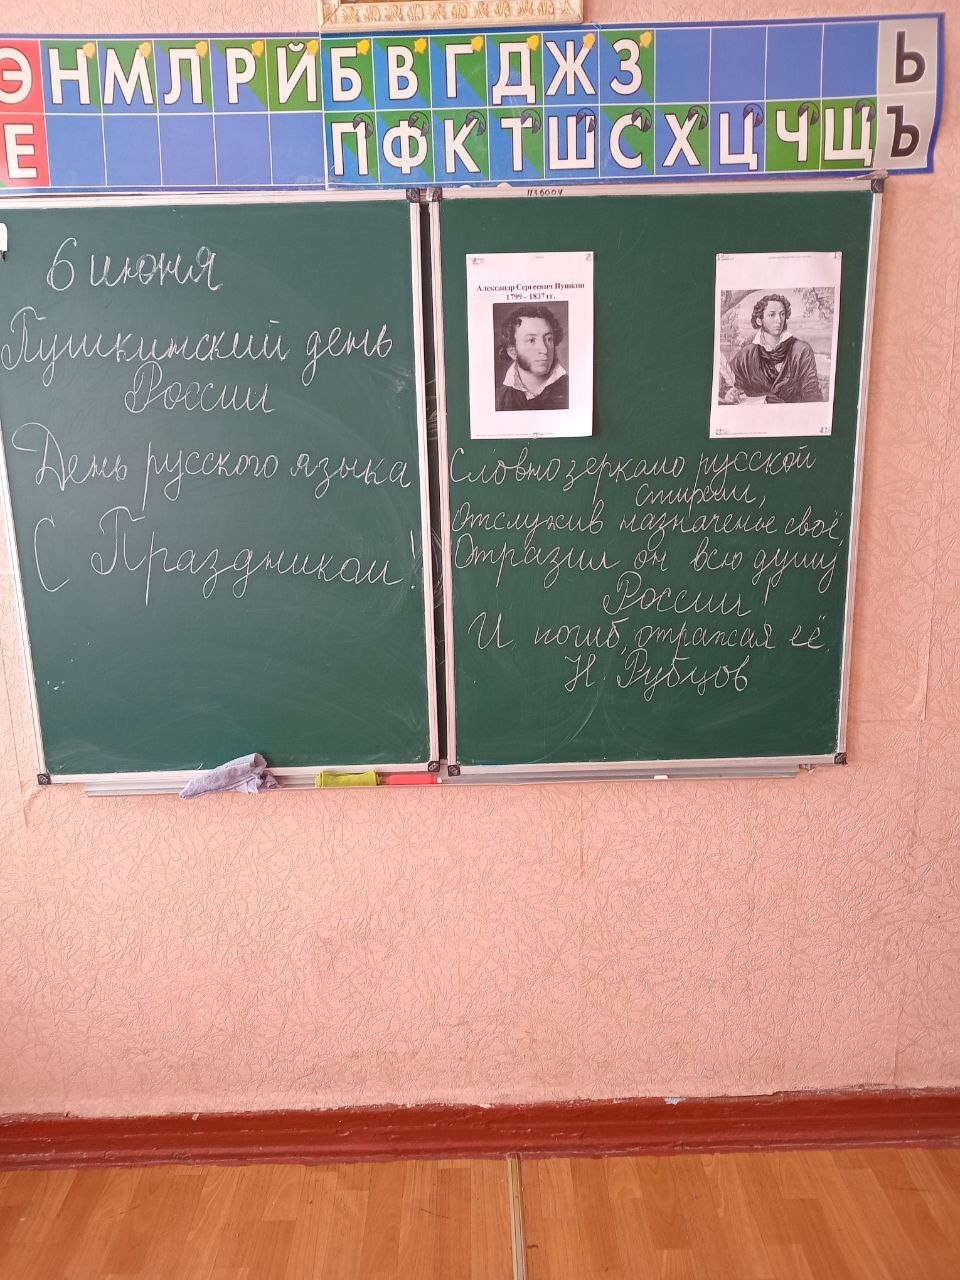 Э Н М Л Р Й Б В Г Д Ж З Ь
Е П Ф К Т Ш С Х Ц Ч Щ Ъ
6 июня
Пушкинский день
России
День русского языка
С Праздником!
Александр Сергеевич Пушкин
1799 – 1837 гг.
Словно зеркало русской
стихии,
Отслужив назначенье своё,
Отразил он всю душу
России!
И погиб, отражая её.
Н. Рубцов